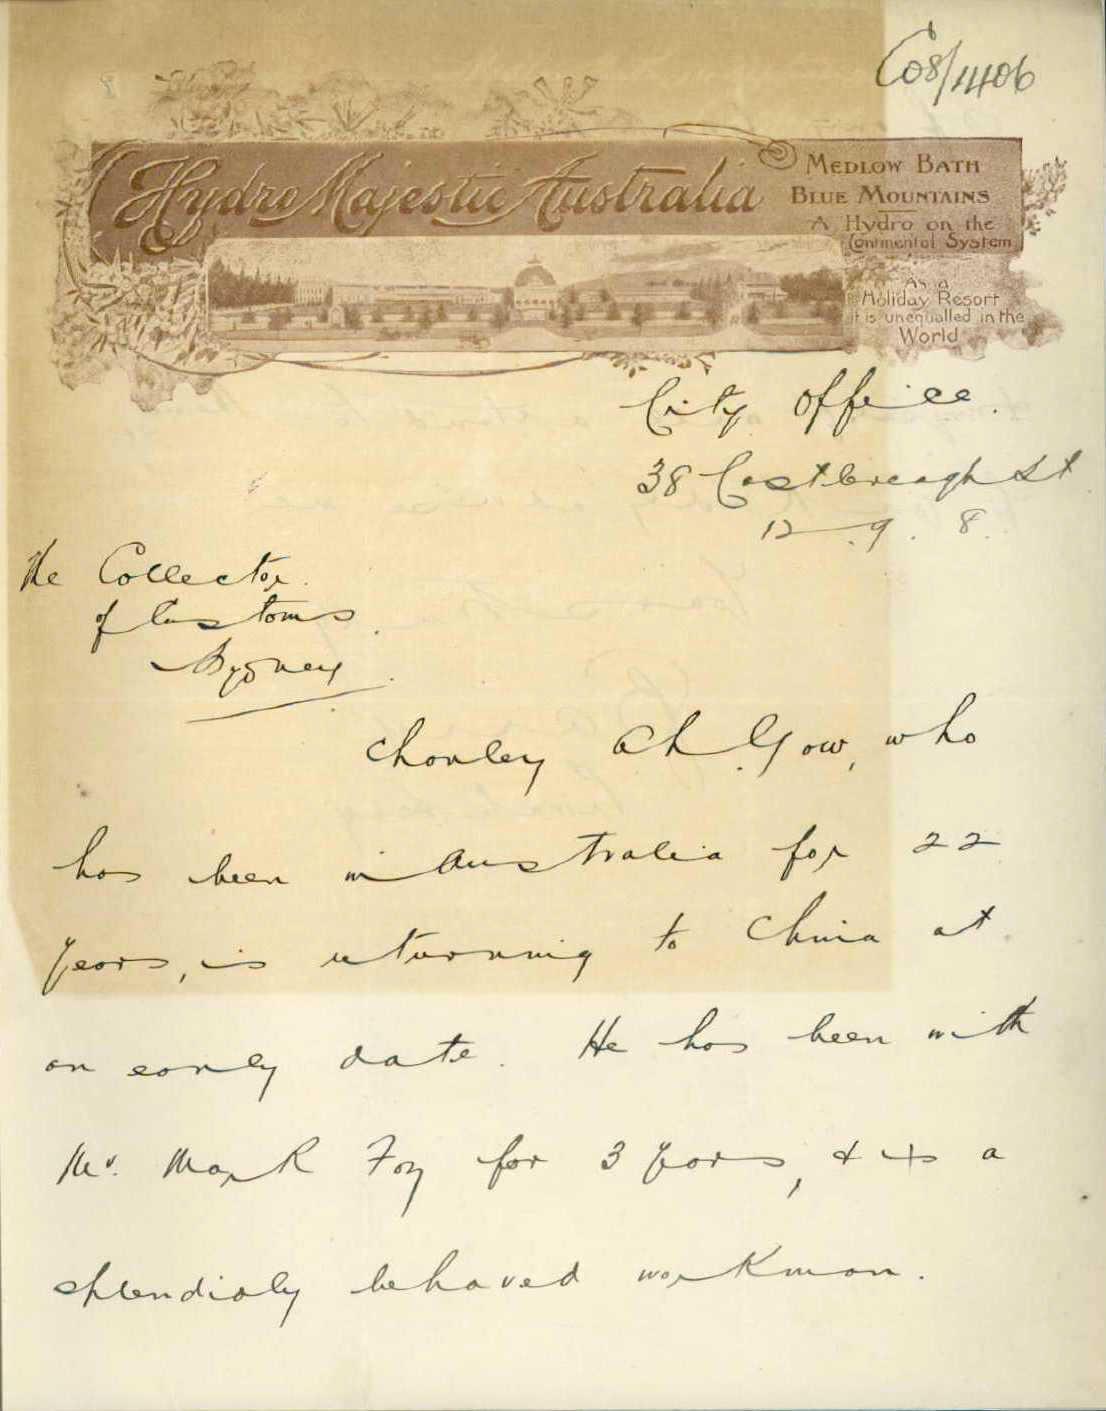 C08/11406
Hydro Majestic Australia
MEDLOW BATH
BLUE MOUNTAINS
A Hydro on the
Continental System
As a
Holiday Resort
it is unequalled in the
World
City Office.
38 Castlereagh St
12. 9. 8.
The Collector
of Customs.
Sydney.
Charley Ah Gow, who
has been in Australia for 22
years, is returning to China at
an early date. He has been with
Mr. Mark Foy for 3 years, & is a
splendidly behaved workman.